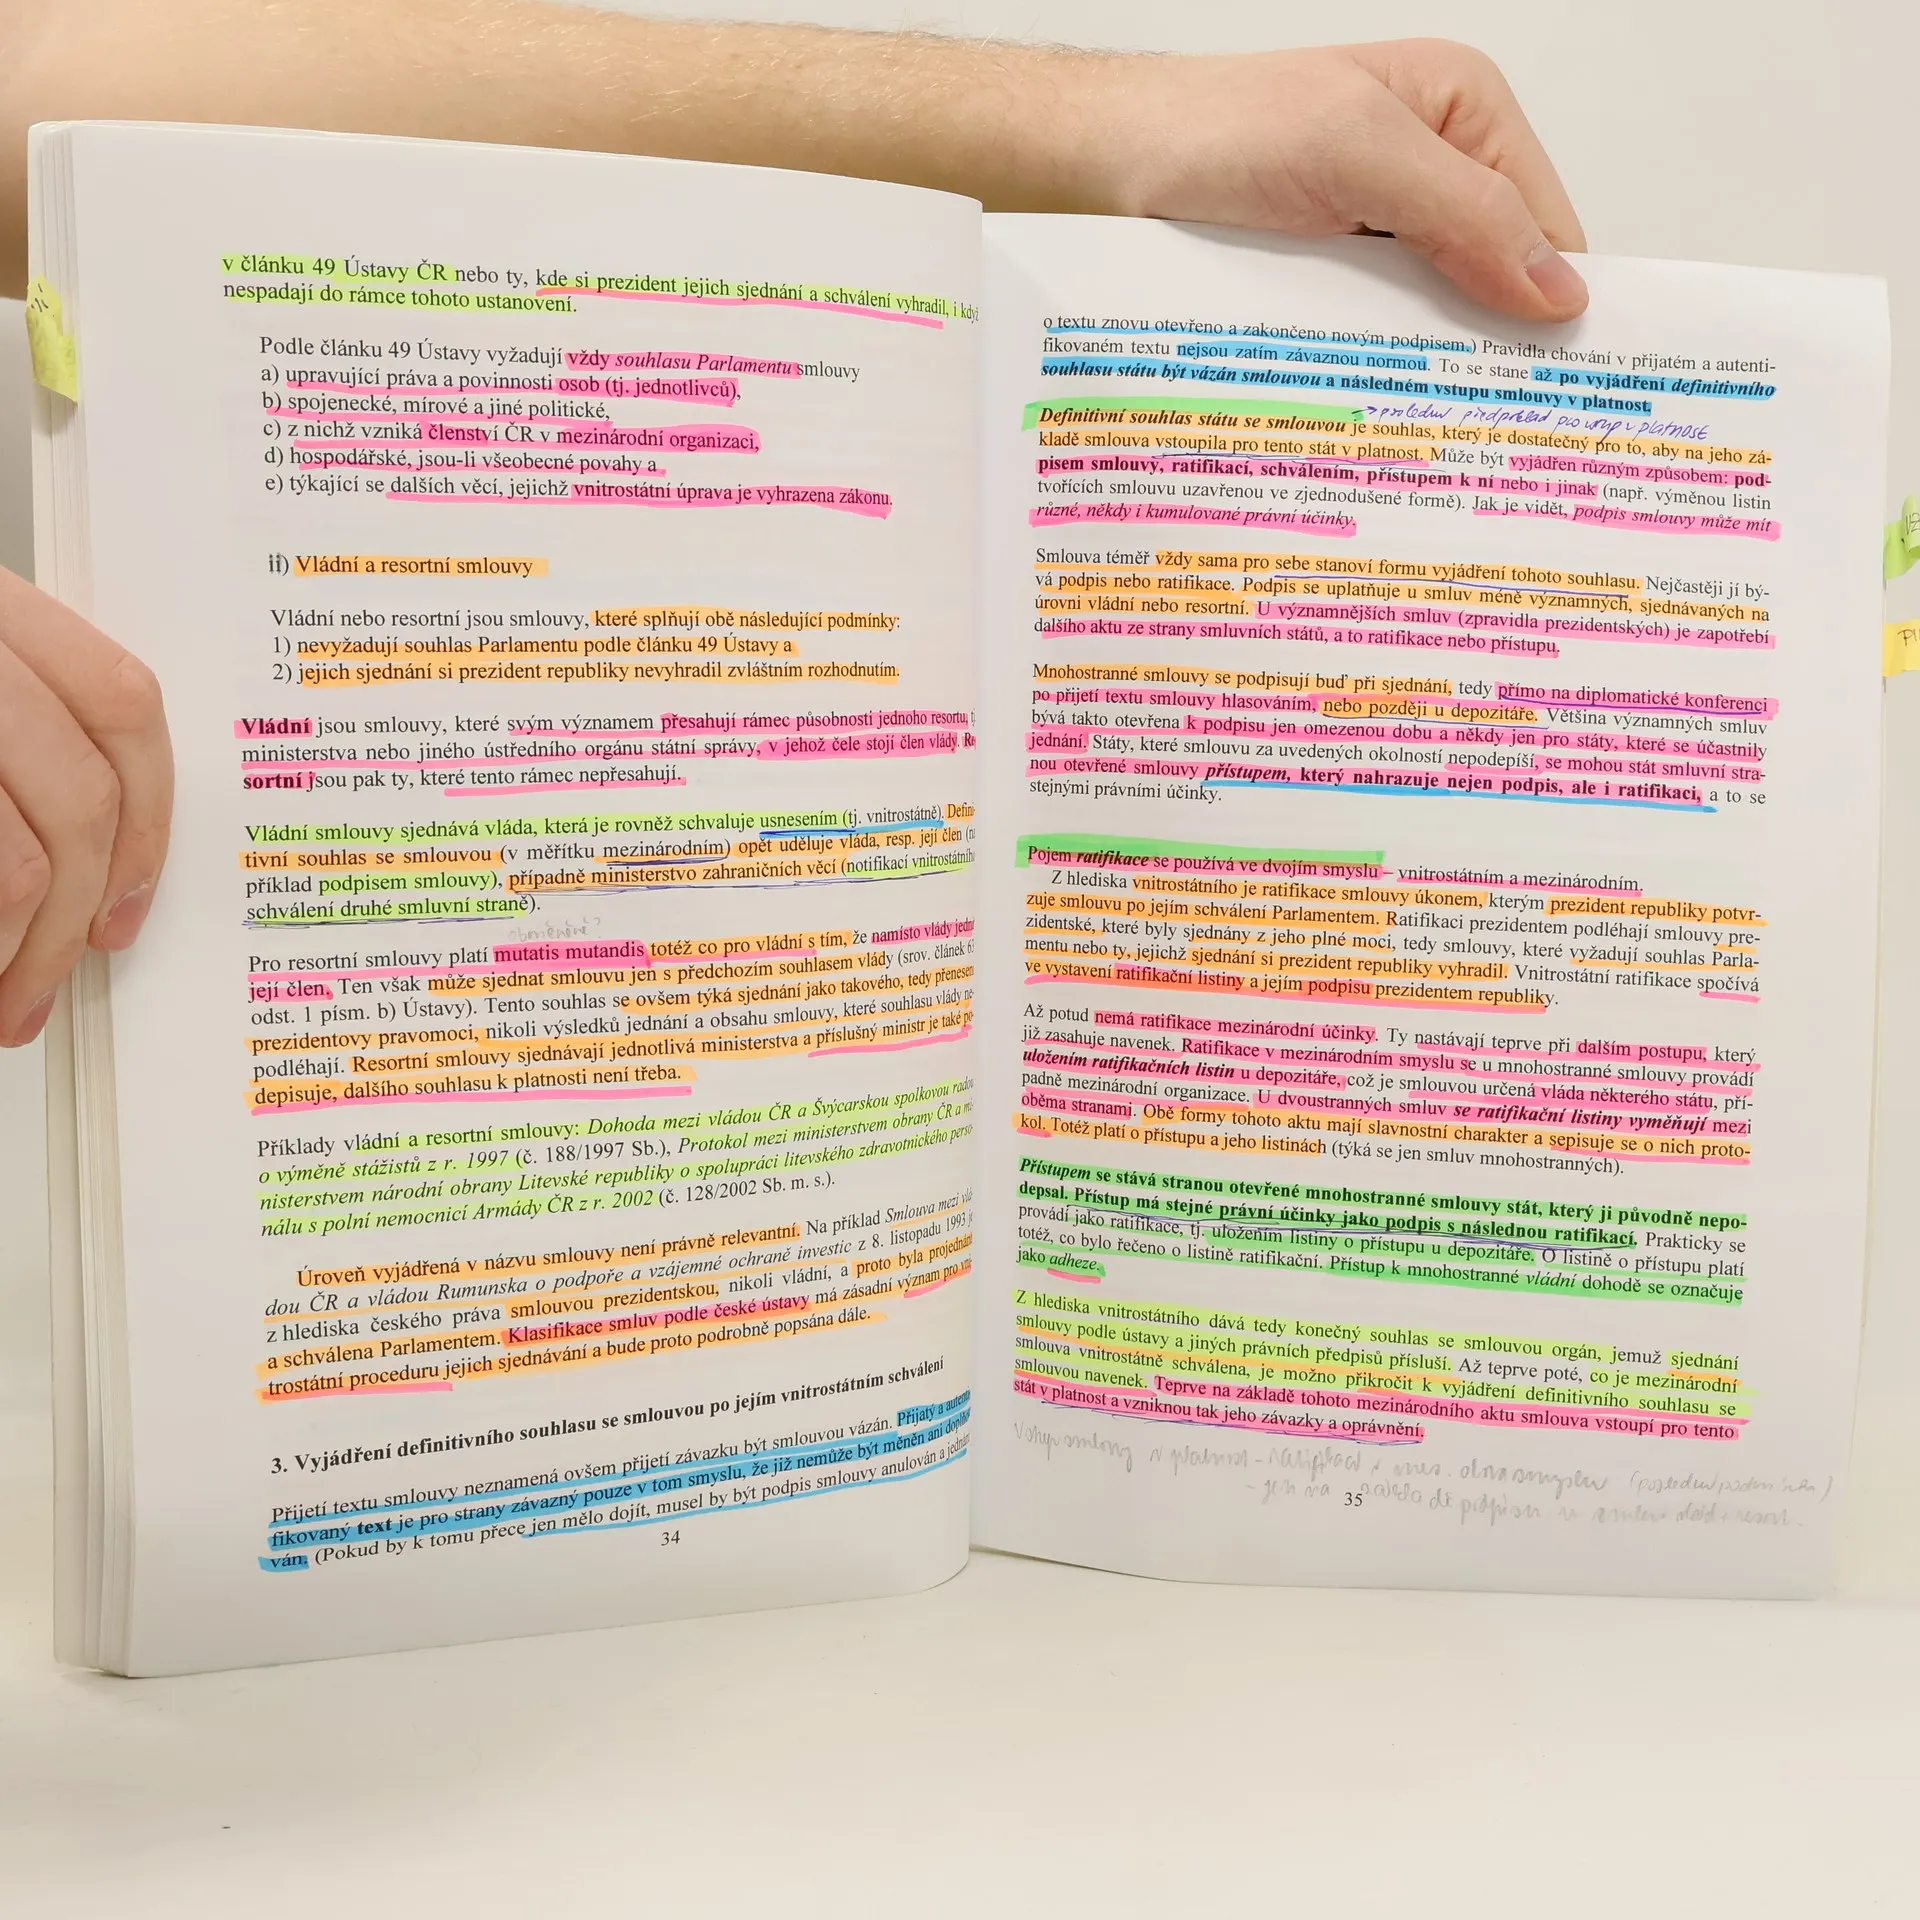 v článku 49 Ústavy ČR nebo ty, kde si prezident jejich sjednání a schválení vyhradil, i když
nespadají do rámce tohoto ustanovení.
Podle článku 49 Ústavy vyžadují vždy souhlasu Parlamentu smlouvy
a) upravující práva a povinnosti osob (tj. jednotlivců),
b) spojenecké, mírové a jiné politické,
c) z nichž vzniká členství ČR v mezinárodní organizaci,
d) hospodářské, jsou-li všeobecné povahy a
e) týkající se dalších věcí, jejichž vnitrostátní úprava je vyhrazena zákonu.
ii) Vládní a resortní smlouvy
Vládní nebo resortní jsou smlouvy, které splňují obě následující podmínky:
1) nevyžadují souhlas Parlamentu podle článku 49 Ústavy a
2) jejich sjednání si prezident republiky nevyhradil zvláštním rozhodnutím.
Vládní jsou smlouvy, které svým významem přesahují rámec působnosti jednoho resortu,
ministerstva nebo jiného ústředního orgánu státní správy, v jehož čele stojí člen vlády. Re-
sortní jsou pak ty, které tento rámec nepřesahují.
Vládní smlouvy sjednává vláda, která je rovněž schvaluje usnesením (tj. vnitrostátně). Defini-
tivní souhlas se smlouvou (v měřítku mezinárodním) opět uděluje vláda, resp. její člen (na-
příklad podpisem smlouvy), případně ministerstvo zahraničních věcí (notifikací vnitrostátního
schválení druhé smluvní straně).
Pro resortní smlouvy platí mutatis mutandis totéž co pro vládní s tím, že namísto vlády jedná
její člen. Ten však může sjednat smlouvu jen s předchozím souhlasem vlády (srov. článek 63
odst. 1 písm. b) Ústavy). Tento souhlas se ovšem týká sjednání jako takového, tedy přenesení
prezidentovy pravomoci, nikoli výsledků jednání a obsahu smlouvy, které souhlasu vlády ne-
podléhají. Resortní smlouvy sjednávají jednotlivá ministerstva a příslušný ministr je také po-
depisuje, dalšího souhlasu k platnosti není třeba.
Příklady vládní a resortní smlouvy: Dohoda mezi vládou ČR a Švýcarskou spolkovou radou
o výměně stážistů z r. 1997 (č. 188/1997 Sb.), Protokol mezi ministerstvem obrany ČR a mi-
nisterstvem národní obrany Litevské republiky o spolupráci litevského zdravotnického perso-
nálu s polní nemocnicí Armády ČR z r. 2002 (č. 128/2002 Sb. m. s.).
Úroveň vyjádřená v názvu smlouvy není právně relevantní. Na příklad Smlouva mezi vlá-
dou ČR a vládou Rumunska o podpoře a vzájemné ochraně investic z 8. listopadu 1993 je
z hlediska českého práva smlouvou prezidentskou, nikoli vládní, a proto byla projednána
a schválena Parlamentem. Klasifikace smluv podle české ústavy má zásadní význam pro vni-
trostátní proceduru jejich sjednávání a bude proto podrobně popsána dále.
3. Vyjádření definitivního souhlasu se smlouvou po jejím vnitrostátním schválení
Přijetí textu smlouvy neznamená ovšem přijetí závazku být smlouvou vázán. Přijatý a autenti-
fikovaný text je pro strany závazný pouze v tom smyslu, že již nemůže být měněn ani doplňo-
ván. (Pokud by k tomu přece jen mělo dojít, musel by být podpis smlouvy anulován a jednání
34
o textu znovu otevřeno a zakončeno novým podpisem.) Pravidla chování v přijatém a autenti-
fikovaném textu nejsou zatím závaznou normou. To se stane až po vyjádření definitivního
souhlasu státu být vázán smlouvou a následném vstupu smlouvy v platnost.
→ poslední předpoklad pro vstup v platnost
Definitivní souhlas státu se smlouvou je souhlas, který je dostatečný pro to, aby na jeho zá-
kladě smlouva vstoupila pro tento stát v platnost. Může být vyjádřen různým způsobem: pod-
pisem smlouvy, ratifikací, schválením, přístupem k ní nebo i jinak (např. výměnou listin
tvořících smlouvu uzavřenou ve zjednodušené formě). Jak je vidět, podpis smlouvy může mít
různé, někdy i kumulované právní účinky.
Smlouva téměř vždy sama pro sebe stanoví formu vyjádření tohoto souhlasu. Nejčastěji jí bý-
vá podpis nebo ratifikace. Podpis se uplatňuje u smluv méně významných, sjednávaných na
úrovni vládní nebo resortní. U významnějších smluv (zpravidla prezidentských) je zapotřebí
dalšího aktu ze strany smluvních států, a to ratifikace nebo přístupu.
Mnohostranné smlouvy se podpisují buď při sjednání, tedy přímo na diplomatické konferenci
po přijetí textu smlouvy hlasováním, nebo později u depozitáře. Většina významných smluv
bývá takto otevřena k podpisu jen omezenou dobu a někdy jen pro státy, které se účastnily
jednání. Státy, které smlouvu za uvedených okolností nepodepíší, se mohou stát smluvní stra-
nou otevřené smlouvy přístupem, který nahrazuje nejen podpis, ale i ratifikaci, a to se
stejnými právními účinky.
Pojem ratifikace se používá ve dvojím smyslu – vnitrostátním a mezinárodním.
Z hlediska vnitrostátního je ratifikace smlouvy úkonem, kterým prezident republiky potvr-
zuje smlouvu po jejím schválení Parlamentem. Ratifikaci prezidentem podléhají smlouvy pre-
zidentské, které byly sjednány z jeho plné moci, tedy smlouvy, které vyžadují souhlas Parla-
mentu nebo ty, jejichž sjednání si prezident republiky vyhradil. Vnitrostátní ratifikace spočívá
ve vystavení ratifikační listiny a jejím podpisu prezidentem republiky.
Až potud nemá ratifikace mezinárodní účinky. Ty nastávají teprve při dalším postupu, který
již zasahuje navenek. Ratifikace v mezinárodním smyslu se u mnohostranné smlouvy provádí
uložením ratifikačních listin u depozitáře, což je smlouvou určená vláda některého státu, pří-
padně mezinárodní organizace. U dvoustranných smluv se ratifikační listiny vyměňují mezi
oběma stranami. Obě formy tohoto aktu mají slavnostní charakter a sepisuje se o nich proto-
kol. Totéž platí o přístupu a jeho listinách (týká se jen smluv mnohostranných).
Přístupem se stává stranou otevřené mnohostranné smlouvy stát, který ji původně nepo-
depsal. Přístup má stejné právní účinky jako podpis s následnou ratifikací. Prakticky se
provádí jako ratifikace, tj. uložením listiny o přístupu u depozitáře. O listině o přístupu platí
totéž, co bylo řečeno o listině ratifikační. Přístup k mnohostranné vládní dohodě se označuje
jako adheze.
Z hlediska vnitrostátního dává tedy konečný souhlas se smlouvou orgán, jemuž sjednání
smlouvy podle ústavy a jiných právních předpisů přísluší. Až teprve poté, co je mezinárodní
smlouva vnitrostátně schválena, je možno přikročit k vyjádření definitivního souhlasu se
smlouvou navenek. Teprve na základě tohoto mezinárodního aktu smlouva vstoupí pro tento
stát v platnost a vzniknou tak jeho závazky a oprávnění.
vstup smlouvy v platnost – ratifikací
35